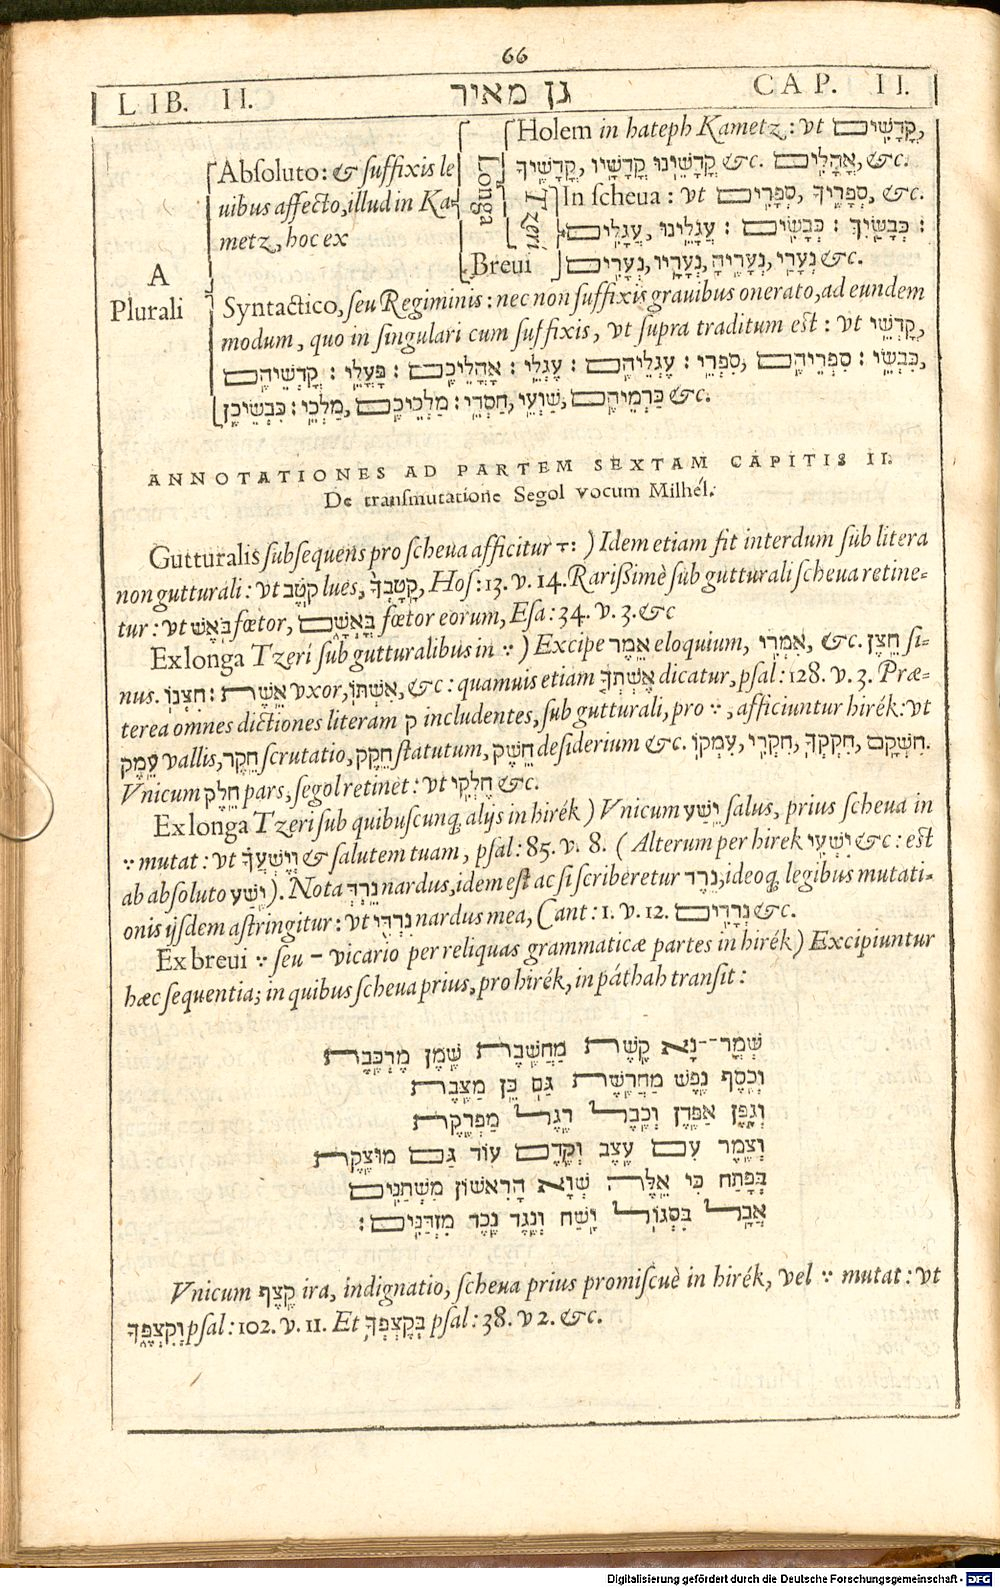 66
LIB. II. גן מאיר CAP. II.
Holem in hateph Kametz: vt קָדָשִׁים,
קָדָשֵׁינוּ קָדָשָׁיו, קָדָשֶׁיךָ &c. אֳהָלִים, &c.
Absoluto: & suffixis le
uibus affecto, illud in Ka-
metz, hoc ex
Longa
Tzeri
In scheua: vt סְפָרִים, סְפָרֶיךָ, &c.
כְּבָשֶׂיךָ: כְּבָשִׂים: עֲגָלֵינוּ, עֲגָלִים:
Breui
נְעָרַי, נְעָרֶיהָ, נְעָרָיו, נְעָרִים &c.
A
Plurali
Syntactico, seu Regiminis: nec non suffixis grauibus onerato, ad eundem
modum, quo in singulari cum suffixis, vt supra traditum est: vt קָדְשֵׁי,
כִּבְשֵׂי: סִפְרֵיהֶם, סִפְרֵי: עֶגְלֵיהֶם: עֶגְלֵי: אָהֳלֵיכֶם: פָּעֳלֵי: קָדְשֵׁיהֶם
כַּרְמֵיהֶם, שַׁוְעֵי, חַסְדֵי: מַלְכֵיכֶם, מַלְכֵי: כִּבְשֵׂיכֶן &c.
ANNOTATIONES AD PARTEM SEXTAM CAPITIS II.
De transmutatione Segol vocum Milhél.
Gutturalis subsequens pro scheua afficitur ) Idem etiam fit interdum sub litera
non gutturali: vt קֶטֶב lues, קָטָבְךָ, Hos: 13. v. 14. Rarißimè sub gutturali scheua retine-
tur: vt בְּאֹשׁ fœtor, בָּאְשָׁם fœtor eorum, Esa: 34. v. 3. &c
Ex longa Tzeri sub gutturalibus in ֶ ) Excipe אֵמֶר eloquium, אִמְרֵי, &c. חֵצֶן si-
nus. חִצְנוֹ: אֵשֶׁת vxor, אִשְׁתּוֹ, &c: quamuis etiam אֶשְׁתְּךָ dicatur, psal: 128. v. 3. Præ-
terea omnes dictiones literam ק includentes, sub gutturali, pro ֶ, afficiuntur hirék: vt
עֵמֶק vallis, חֵקֶר scrutatio, חֵקֶק statutum, חֵשֶׁק desiderium &c. חִשְׁקָם, חִקְקְךָ, חִקְרִי, עִמְקוֹ.
Vnicum חֵלֶק pars, segol retinet: vt חֶלְקִי &c.
Ex longa Tzeri sub quibuscunq́ alijs in hirék ) Vnicum יֵשַׁע salus, prius scheua in
ֶ mutat: vt וְיֶשְׁעֲךָ & salutem tuam, psal: 85. v. 8. ( Alterum per hirek יִשְׁעִי &c: est
ab absoluto יֵשַׁע). Nota נֵרְדְּ nardus, idem est ac si scriberetur נֵרֶד, ideoq́ legibus mutati-
onis ijsdem astringitur: vt נִרְדִּי nardus mea, Cant: 1. v. 12. נְרָדִים &c.
Ex breui ֶ seu ַ vicario per reliquas grammaticæ partes in hirék) Excipiuntur
hæc sequentia; in quibus scheua prius, pro hirék, in páthah transit:
שְׁמָר־־נָא קֶשֶׁת מַחֲשֶׁבֶת שֶׁמֶן מֶרְכֶּבֶת
וְכֶסֶף נֶפֶשׁ מַחֲרֶשֶׁת גַּם כֵּן מַצֶּבֶת
וְגֶפֶן אַפֶּדֶן וְכֶבֶל רֶגֶל מַפְרֶקֶת
וְצֶמֶר עִם עֶצֶב וְקֶדֶם עוֹד גַּם מוּצֶקֶת
בְּפָתַח כִּי אֵלֶּה שְׁוָא הָרִאשׁוֹן מִשְׁתַּנִּים
אֲבָל בִּסְגוֹל יֶשַׁח וְנֶגֶד נֶכֶד מִזְדַּנִּים:
Vnicum קֶצֶף ira, indignatio, scheua prius promiscuè in hirék, vel ֶ mutat: vt
וְקִצְפֶּךָ psal: 102. v. 11. Et בְּקֶצְפְּךָ psal: 38. v 2. &c.
Digitalisierung gefördert durch die Deutsche Forschungsgemeinschaft - DFG